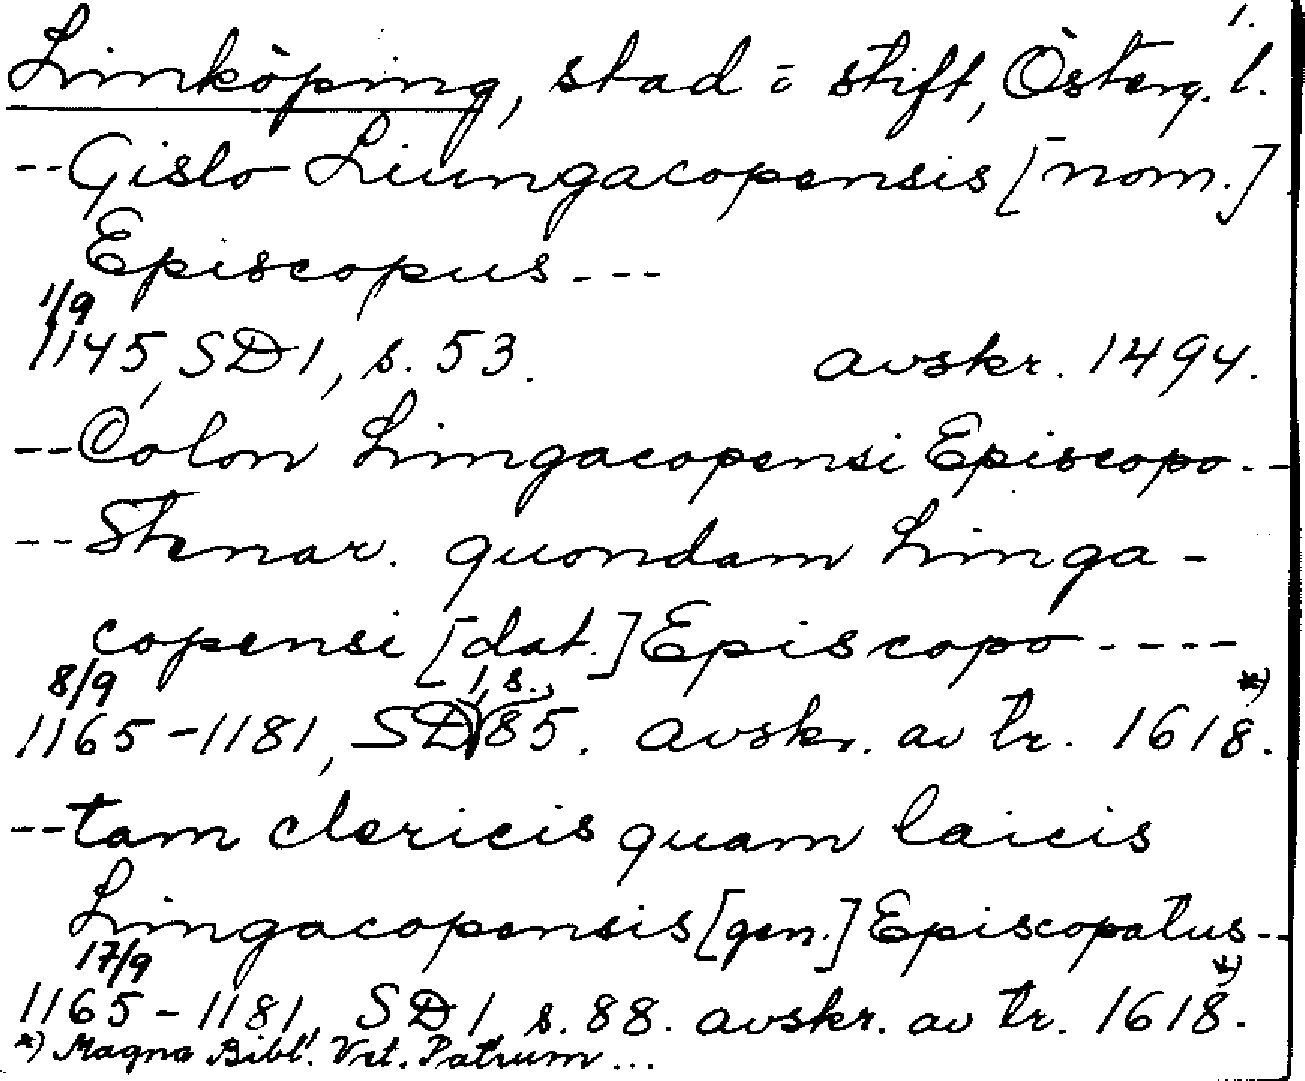 1.
Linköping, stad o stift, Österg. l.
-- Gislo Liungacopensis [nom.]
Episcopus ---
1/9
1145, SD 1, s. 53. avskr. 1494.
-- Colon Lingacopensi Episcopo --
-- Stenar. quondam Linga-
copensi [dat.] Episcopo ----
8/9
1165-1181, SD 1, s. 85. avskr. av tr. 1618. *)
-- tam clericis quam laicis
Lingacopensis [gen.] Episcopatus --
17/9
1165-1181, SD 1 s. 88. avskr. av tr. 1618. *)
*) Magna Bibl. Vet. Patrum ...